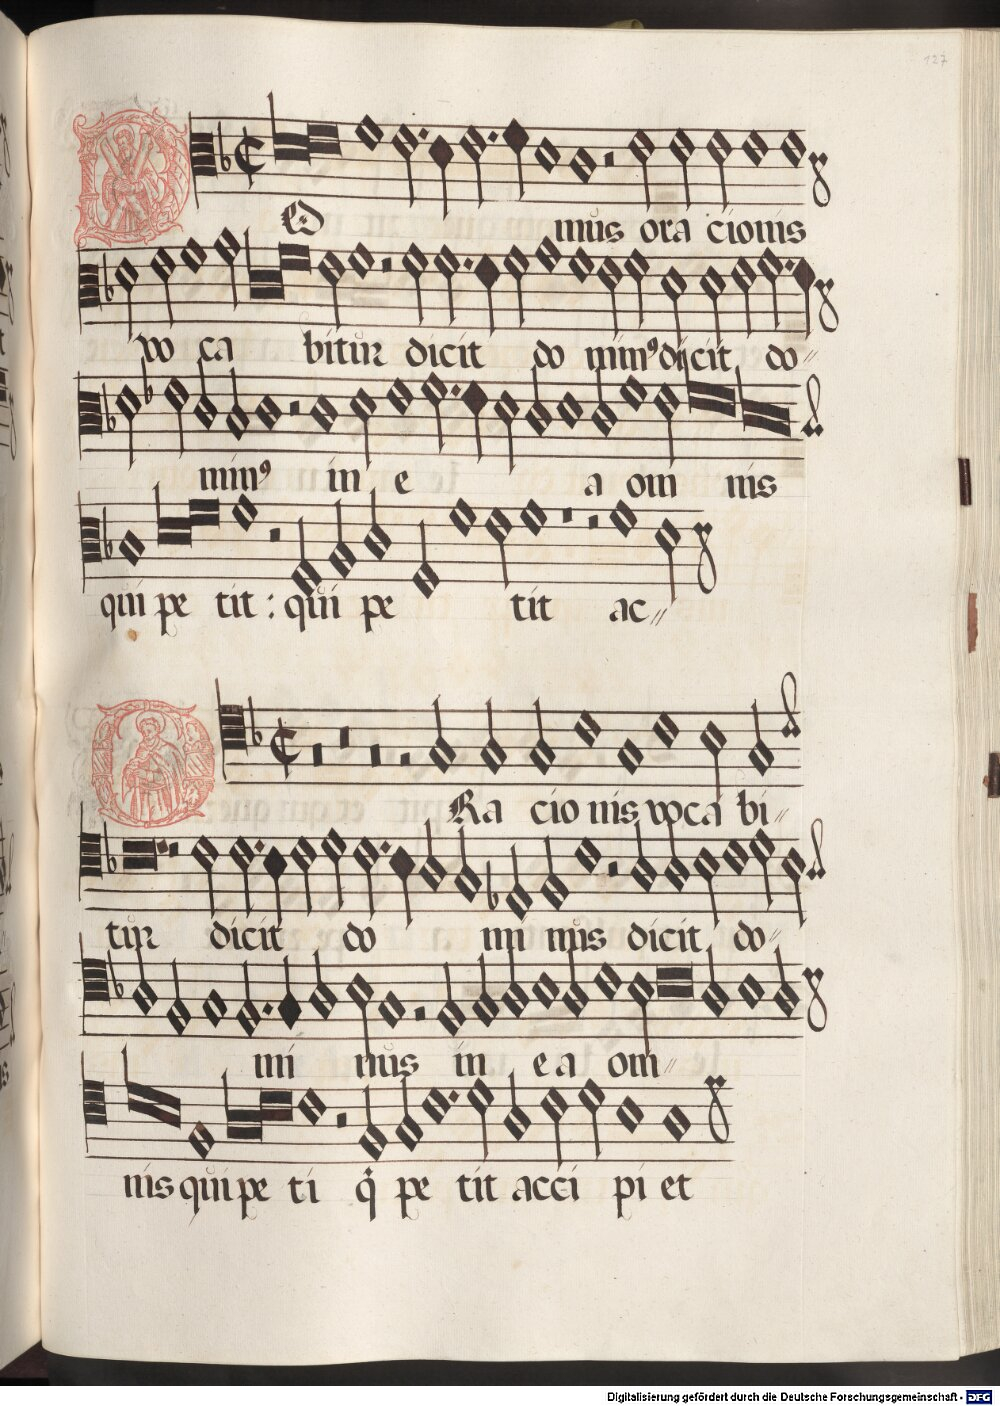 127
DOmus oracionis
vo ca bitur dicit do min⁹ dicit do〃
min⁹ in e a om nis
qui pe tit : qui pe tit ac〃
ORa cio nis voca bi〃
tur dicit do mi nus dicit do〃
mi nus in e a om〃
nis qui pe ti q̃ pe tit acci pi et
Digitalisierung gefördert durch die Deutsche Forschungsgemeinschaft - DFG